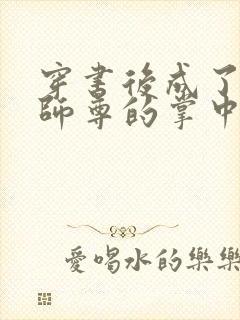 穿書後成了
師尊的掌中
愛喝水的樂樂